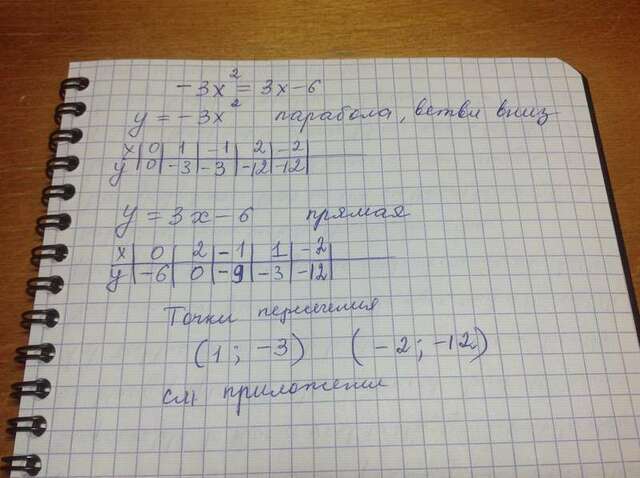 -3x² = 3x-6
y = -3x² парабола, ветви вниз
x | 0 | 1 | -1 | 2 | -2
y | 0 | -3 | -3 | -12 | -12
y = 3x-6 прямая
x | 0 | 2 | -1 | 1 | -2
y | -6 | 0 | -9 | -3 | -12
Точки пересечения
(1; -3) (-2; -12)
см приложение